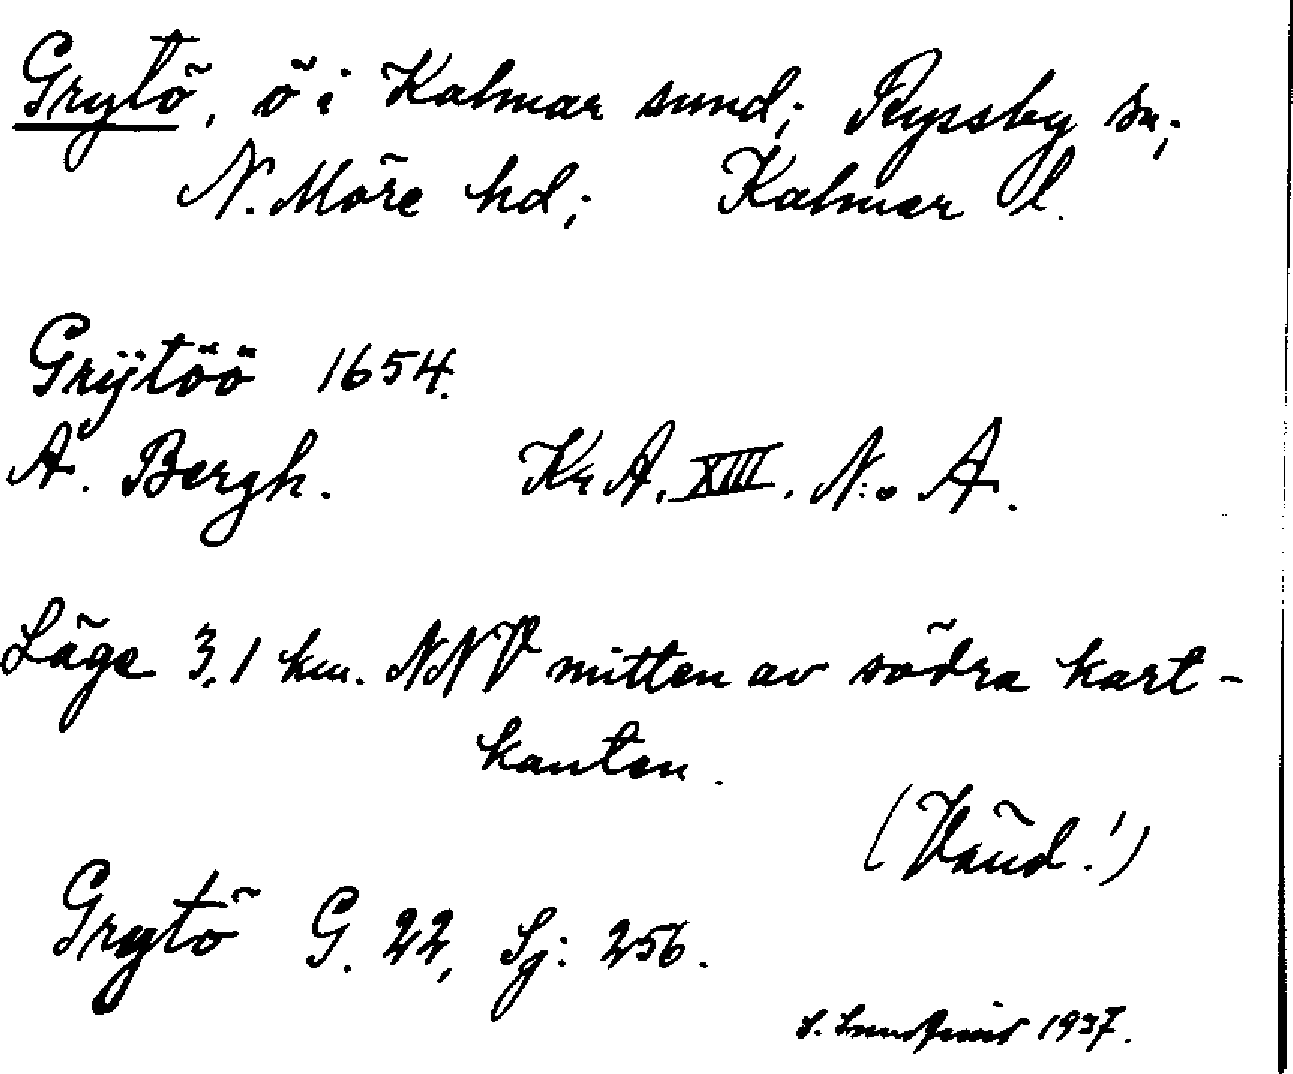 Grytö, ö i Kalmar sund; Ryssby sn;
N. Möre hd; Kalmar l.
Grÿtöö 1654.
A. Bergh. KrA. XIII. N:o A.
Läge 3,1 km. NNV mitten av södra kart-
kanten.
(Vänd!)
Grytö G. 22, Sj: 256.
S. 1937.